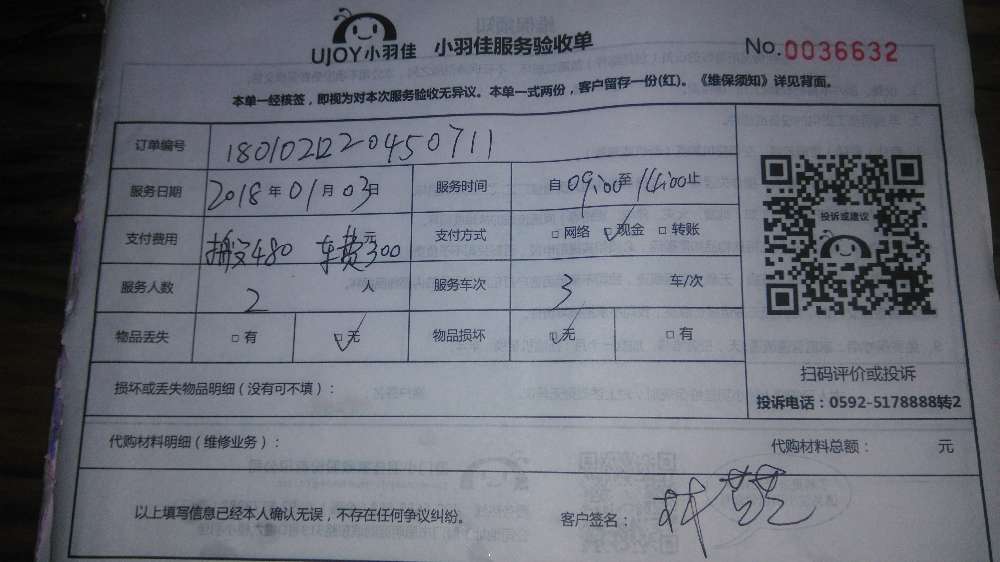 UJOY小羽佳 小羽佳服务验收单 No.0036632
本单一经核签，即视为对本次服务验收无异议。本单一式两份，客户留存一份(红)。《维保须知》详见背面。
订单编号 180102122045071１
服务日期 2018年01月03日 服务时间 自09:00至14:00止
支付费用 搬义480 车费300元 支付方式 □网络 □现金 □转账
服务人数 2 人 服务车次 3 车/次
物品丢失 □有 □无 物品损坏 □无 □有
投诉或建议
扫码评价或投诉
投诉电话：0592-5178888转2
损坏或丢失物品明细（没有可不填）：
代购材料明细（维修业务）： 代购材料总额： 元
以上填写信息已经本人确认无误，不存在任何争议纠纷。 客户签名：